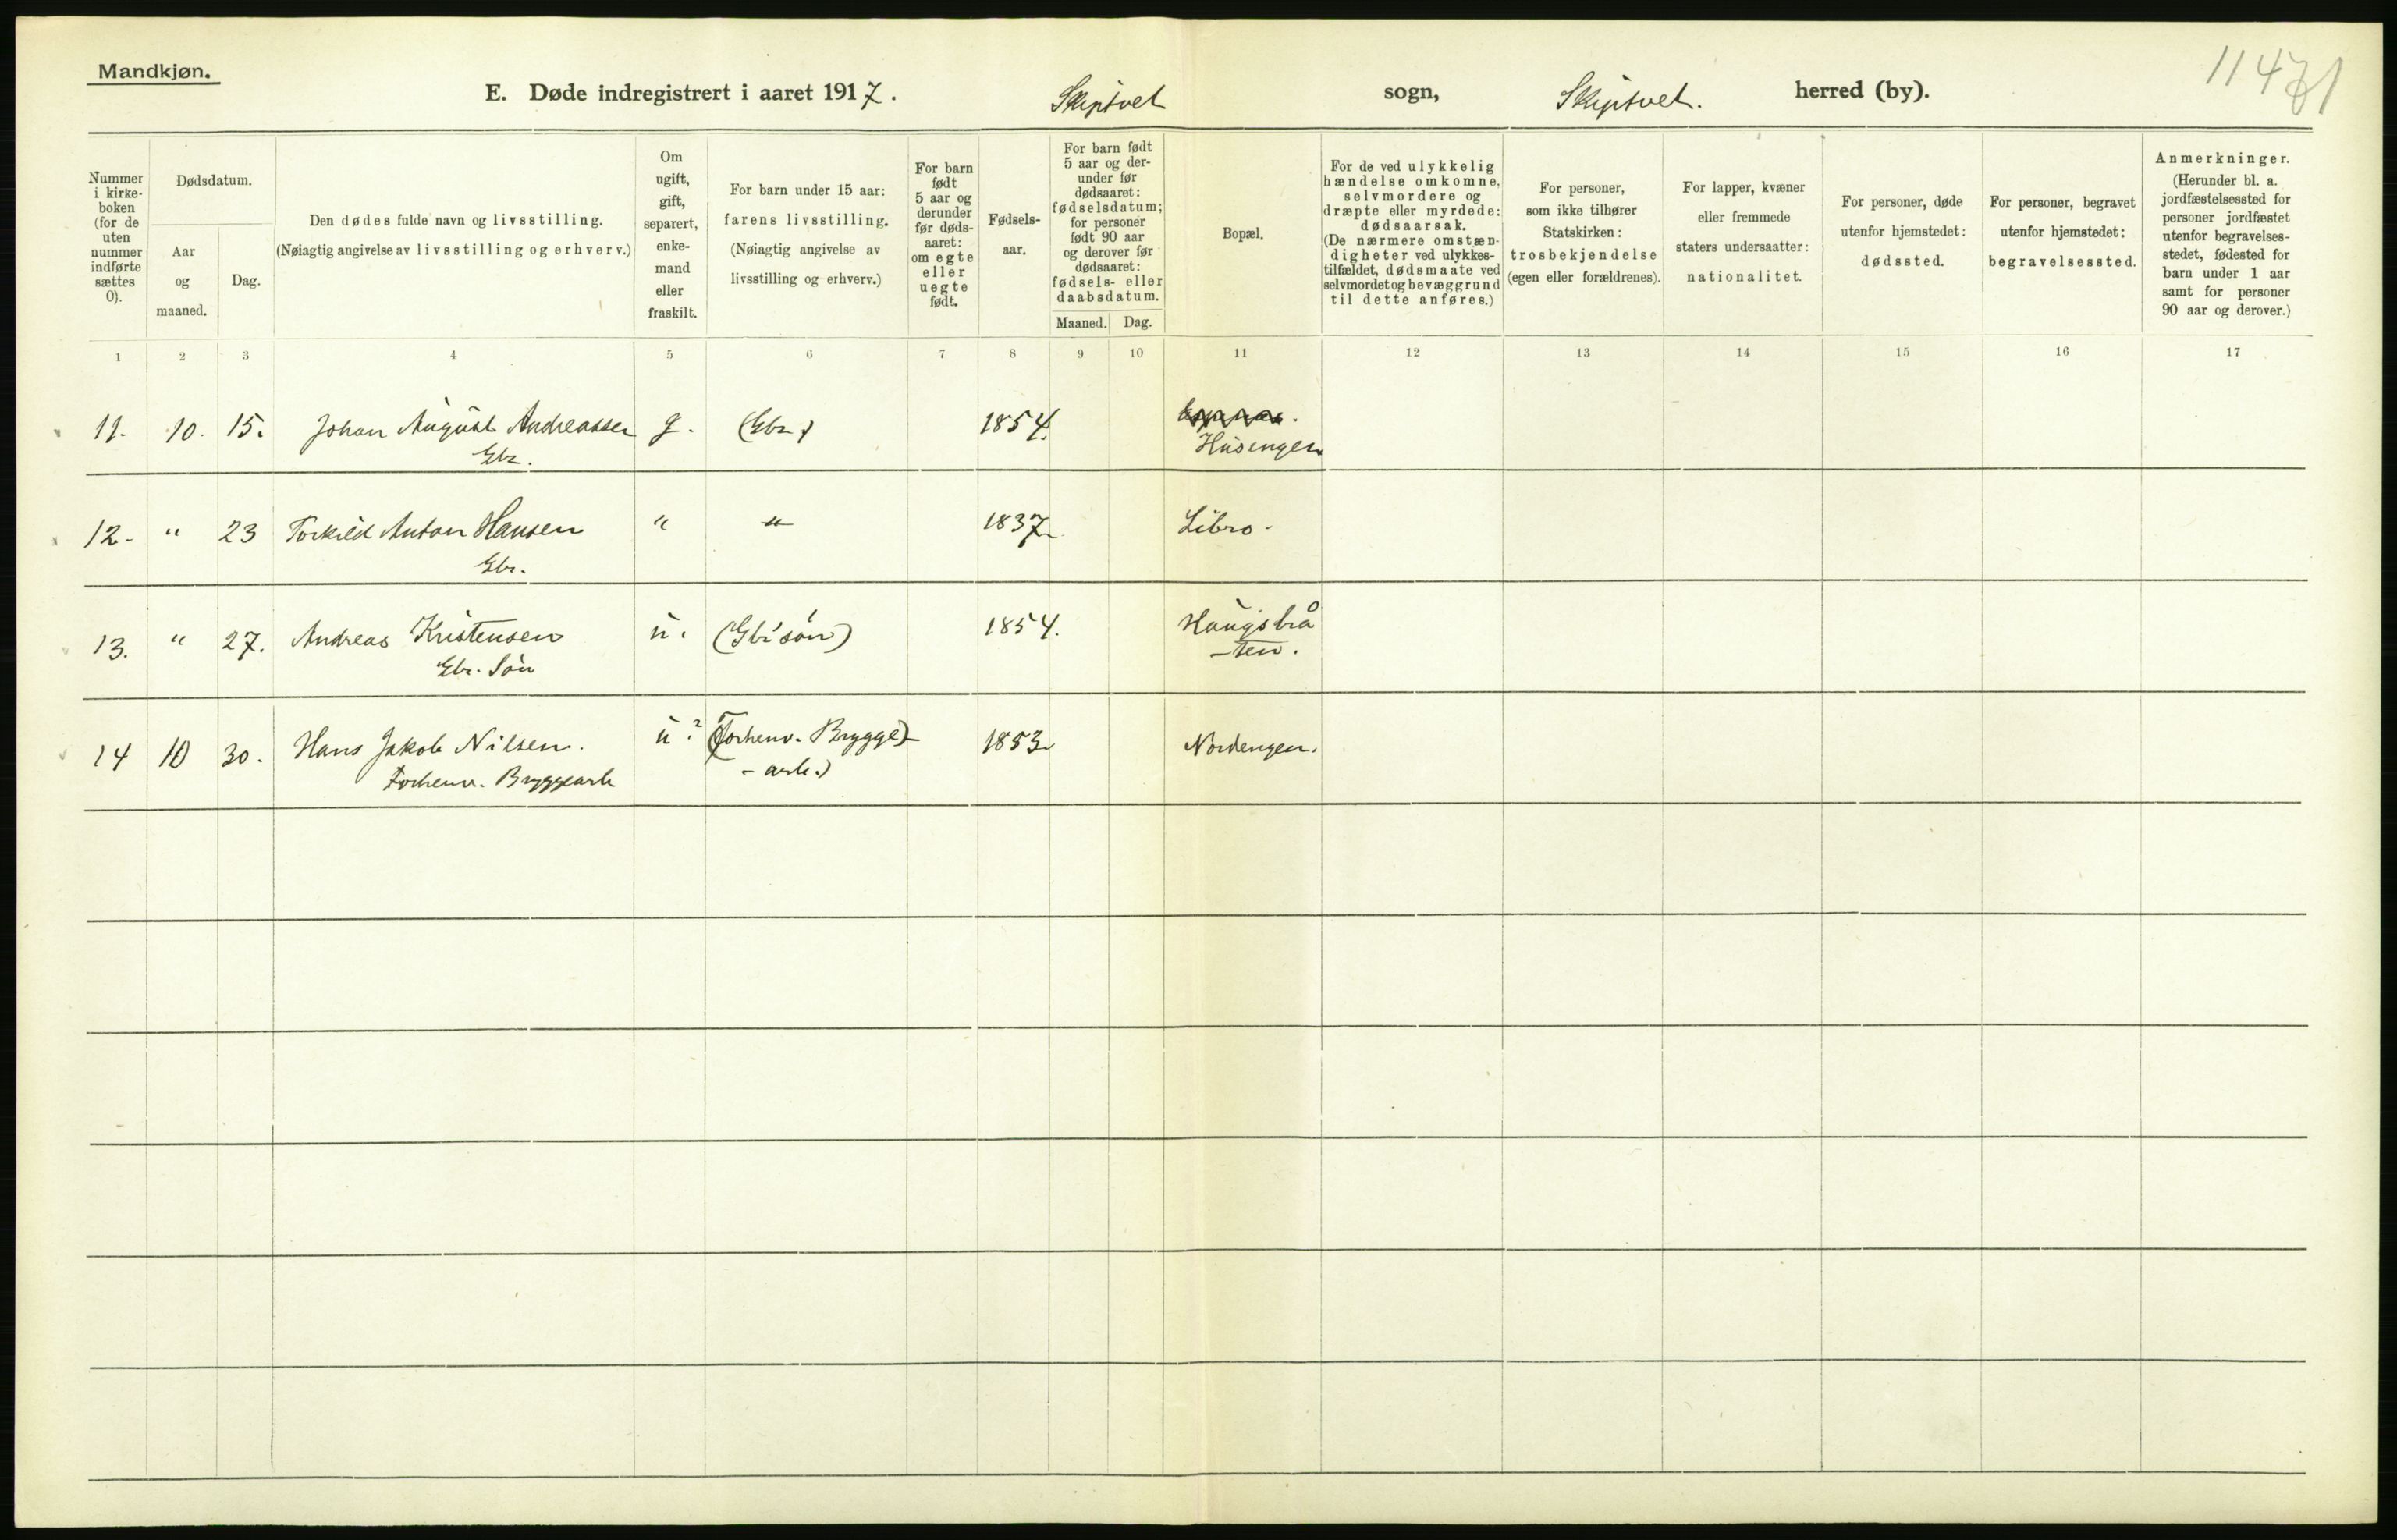 Mandkjøn.
E. Døde indregistrert i aaret 1917. Skiptvet sogn, Skiptvet. herred (by).
Nummer i kirke- boken (for de uten nummer indførte sættes 0).
Dødsdatum.
Aar og maaned.
Dag.
Den dødes fulde navn og livsstilling.
(Nøiagtig angivelse av livsstilling og erhverv.)
Om ugift, gift, separert, enke- mand eller fraskilt.
For barn under 15 aar:
farens livsstilling.
(Nøiagtig angivelse av
livsstilling og erhverv.)
For barn født 5 aar og derunder før døds- aaret: om egte eller uegte født.
Fødsels- aar.
For barn født 5 aar og der- under før dødsaaret: fødselsdatum; for personer født 90 aar og derover før dødsaaret: fødsels- eller daabsdatum.
Maaned. Dag.
Bopæl.
For de ved ulykkelig hændelse omkomne, selvmordere og dræpte eller myrdede: dødsaarsak. (De nærmere omstæn- digheter ved ulykkes- tilfældet, dødsmaate ved selvmordet og bevæggrund til dette anføres.)
For personer, som ikke tilhører Statskirken: trosbekjendelse (egen eller forældrenes).
For lapper, kvæner eller fremmede staters undersaatter: nationalitet.
For personer, døde utenfor hjemstedet: dødssted.
For personer, begravet utenfor hjemstedet: begravelsessted.
Anmerkninger. (Herunder bl. a. jordfæstelsessted for personer jordfæstet utenfor begravelses- stedet, fødested for barn under 1 aar samt for personer 90 aar og derover.)
1 2 3 4 5 6 7 8 9 10 11 12 13 14 15 16 17
11. 10. 15. Johan August Andreassen g. (Gbr.) 1854.
Gbr. Husengen
12. " 23 Torkild Anton Hansen " " 1837. Libro.
Gbr.
13. " 27. Andreas Kristensen u. (Gbr søn) 1854. Haugsbrå
Gbr. Søn -ten.
14 10 30. Hans Jakob Nilsen. u? (Forhenv. Brygge) 1853. Nordengen.
Forhenv. Bryggearb - arb.)